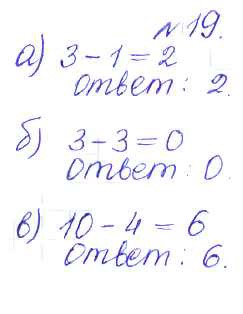 № 19.
а) 3 - 1 = 2
Ответ: 2.
б) 3 - 3 = 0
Ответ: 0.
в) 10 - 4 = 6
Ответ: 6.